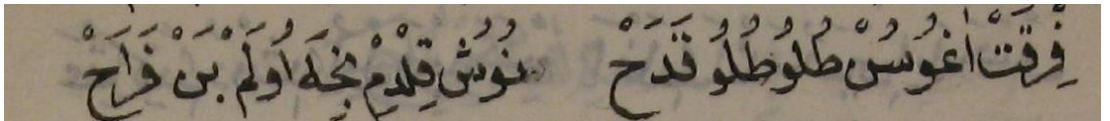 فِرقَتْ اٰغُوسُنْ طُلُو طُلُو قَدَحْ نُوشْ قِلْدِمْ نِجَه اُولَمْ بَنْ فَرَحْ